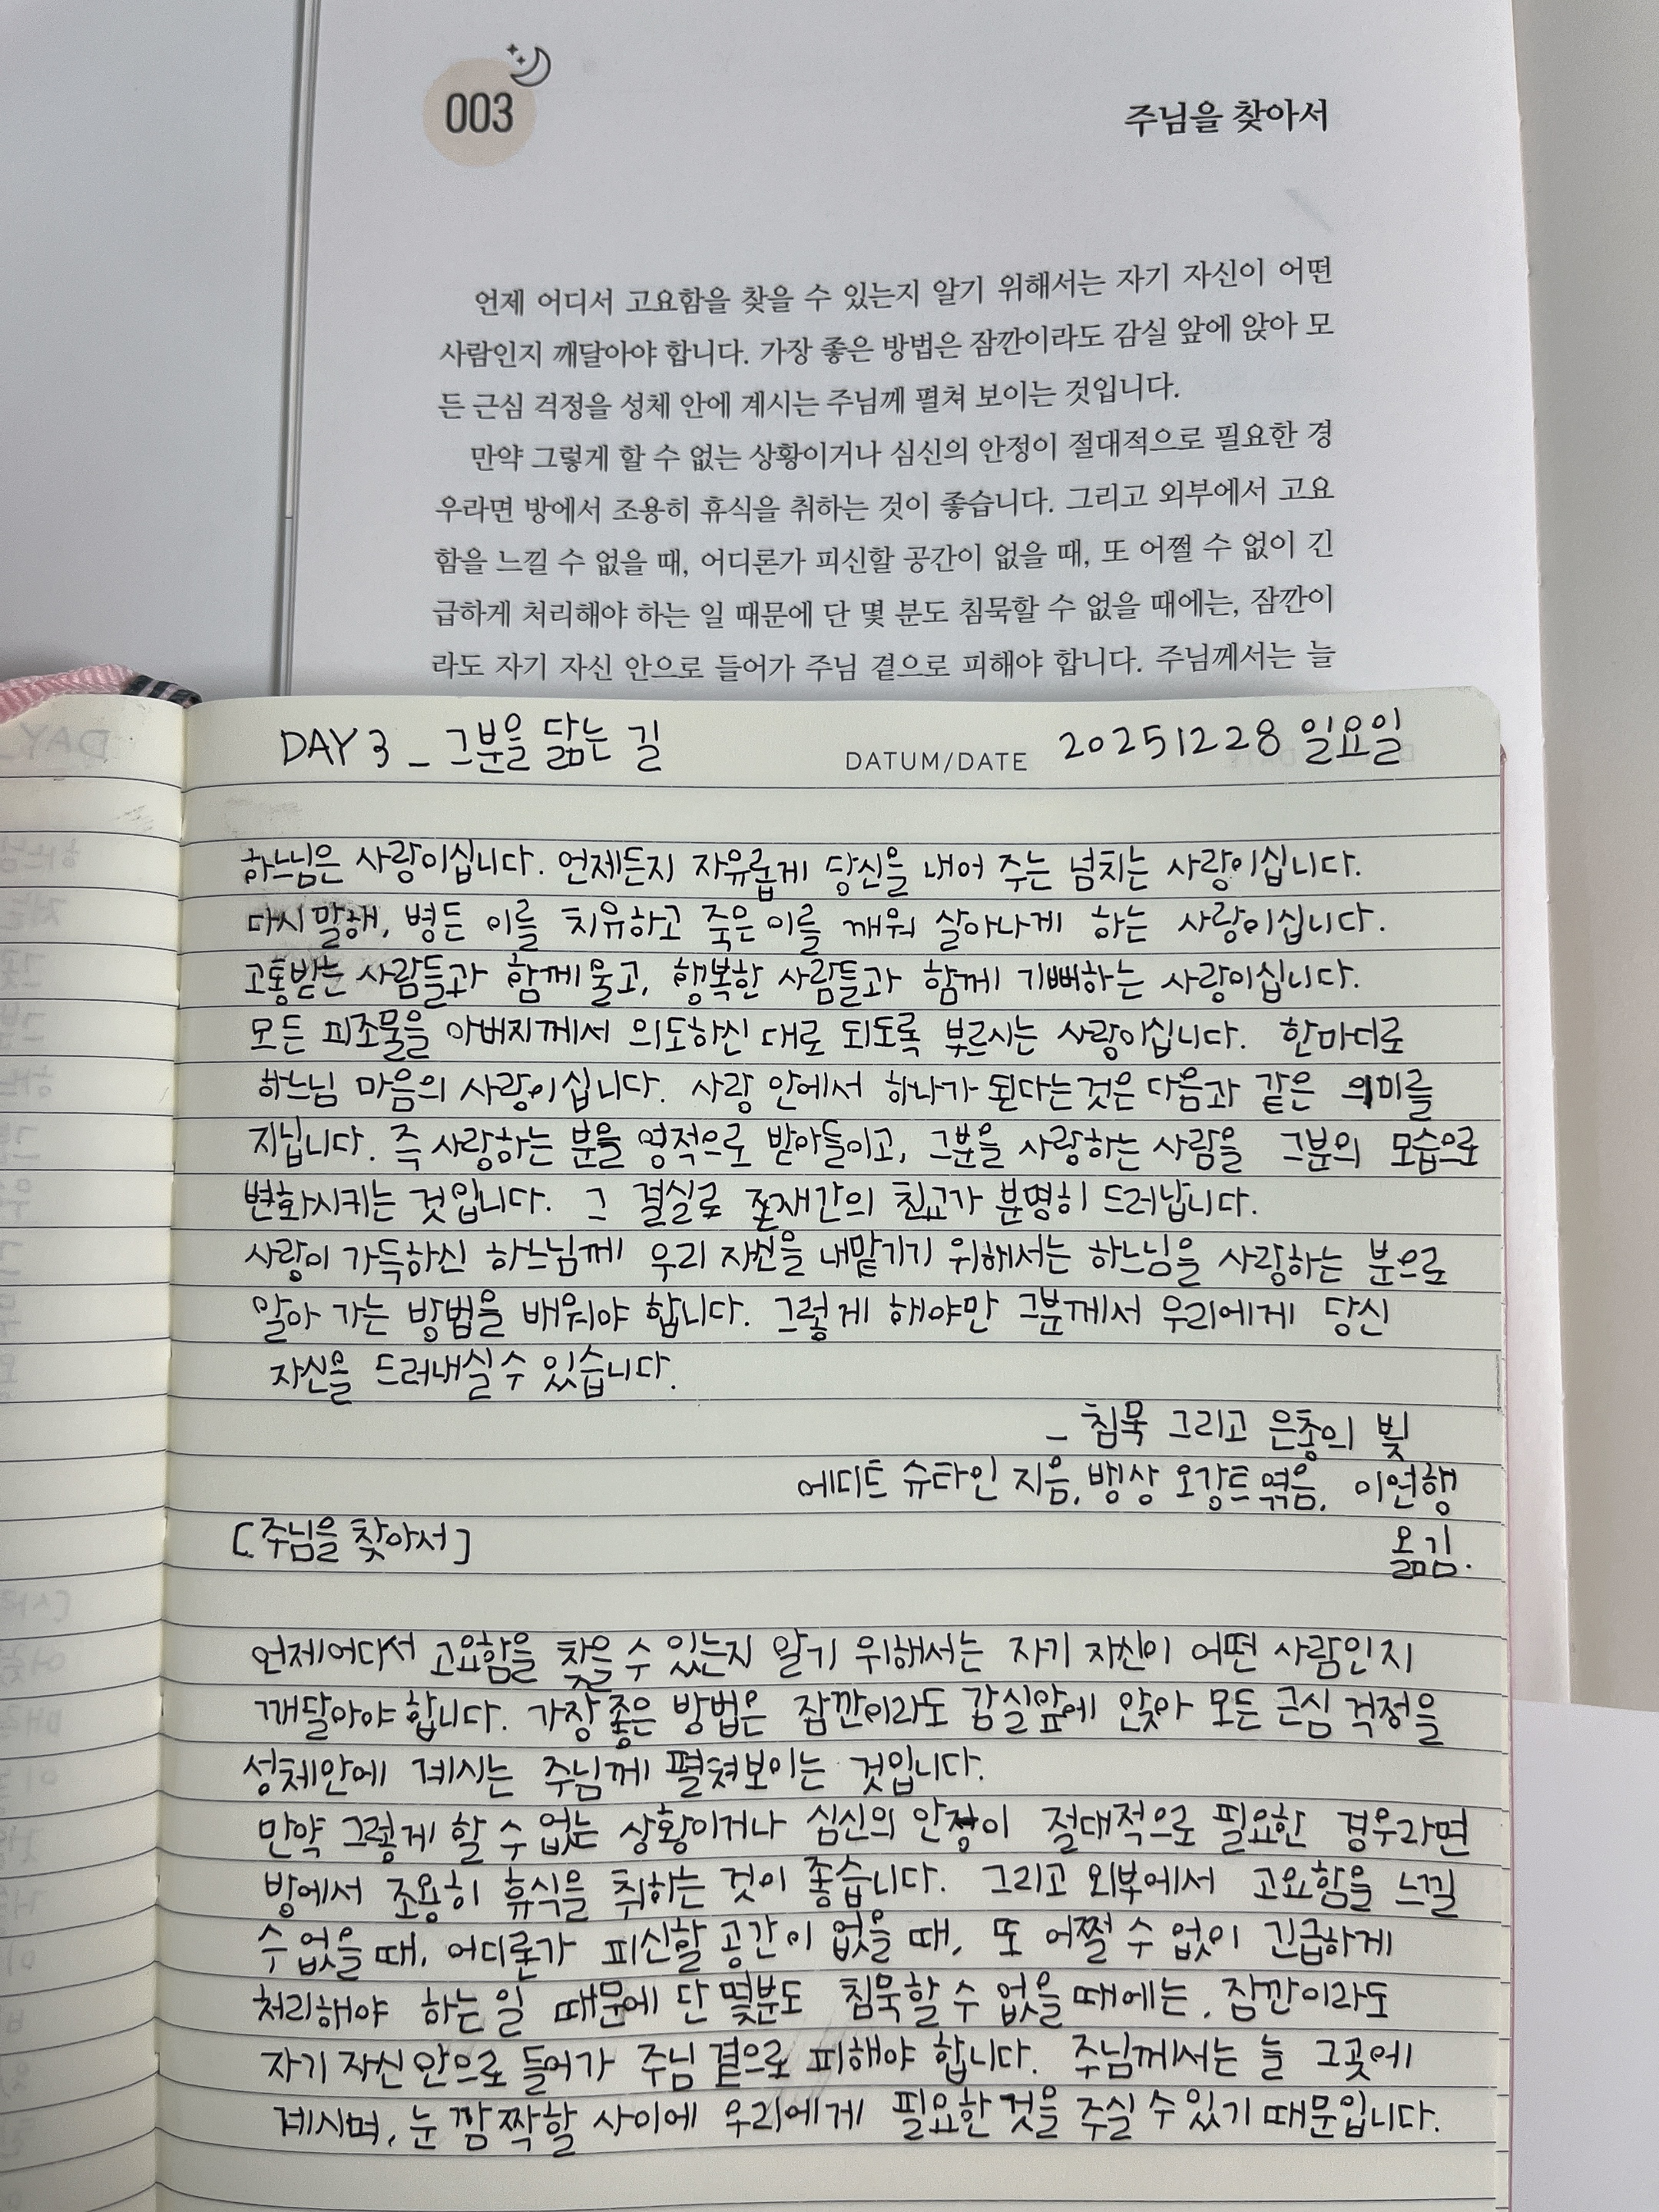 003
주님을 찾아서
언제 어디서 고요함을 찾을 수 있는지 알기 위해서는 자기 자신이 어떤
사람인지 깨달아야 합니다. 가장 좋은 방법은 잠깐이라도 감실 앞에 앉아 모
든 근심 걱정을 성체 안에 계시는 주님께 펼쳐 보이는 것입니다.
만약 그렇게 할 수 없는 상황이거나 심신의 안정이 절대적으로 필요한 경
우라면 방에서 조용히 휴식을 취하는 것이 좋습니다. 그리고 외부에서 고요
함을 느낄 수 없을 때, 어디론가 피신할 공간이 없을 때, 또 어쩔 수 없이 긴
급하게 처리해야 하는 일 때문에 단 몇 분도 침묵할 수 없을 때에는, 잠깐이
라도 자기 자신 안으로 들어가 주님 곁으로 피해야 합니다. 주님께서는 늘
DAY 3 _ 그분을 닮는 길
DATUM/DATE 20251228 일요일
하느님은 사랑이십니다. 언제든지 자유롭게 당신을 내어 주는 넘치는 사랑이십니다.
다시 말해, 병든 이를 치유하고 죽은 이를 깨워 살아나게 하는 사랑이십니다.
고통받는 사람들과 함께 울고, 행복한 사람들과 함께 기뻐하는 사랑이십니다.
모든 피조물을 아버지께서 의도하신 대로 되도록 부르시는 사랑이십니다. 한마디로
하느님 마음의 사랑이십니다. 사랑 안에서 하나가 된다는 것은 다음과 같은 의미를
지닙니다. 즉 사랑하는 분을 영적으로 받아들이고, 그분을 사랑하는 사람을 그분의 모습으로
변화시키는 것입니다. 그 결실로 존재간의 친교가 분명히 드러납니다.
사랑이 가득하신 하느님께 우리 자신을 내맡기기 위해서는 하느님을 사랑하는 분으로
알아 가는 방법을 배워야 합니다. 그렇게 해야만 그분께서 우리에게 당신
자신을 드러내실 수 있습니다.
_ 침묵 그리고 은총의 빛
에디트 슈타인 지음, 뱅상 오캉트 엮음, 이연행
옮김.
[주님을 찾아서]
언제어디서 고요함을 찾을 수 있는지 알기 위해서는 자기 자신이 어떤 사람인지
깨달아야 합니다. 가장 좋은 방법은 잠깐이라도 감실앞에 앉아 모든 근심 걱정을
성체안에 계시는 주님께 펼쳐보이는 것입니다.
만약 그렇게 할 수 없는 상황이거나 심신의 안정이 절대적으로 필요한 경우라면
방에서 조용히 휴식을 취하는 것이 좋습니다. 그리고 외부에서 고요함을 느낄
수 없을 때, 어디론가 피신할 공간이 없을 때, 또 어쩔 수 없이 긴급하게
처리해야 하는 일 때문에 단 몇분도 침묵할 수 없을 때에는, 잠깐이라도
자기 자신 안으로 들어가 주님 곁으로 피해야 합니다. 주님께서는 늘 그곳에
계시며, 눈 깜짝할 사이에 우리에게 필요한 것을 주실 수 있기 때문입니다.